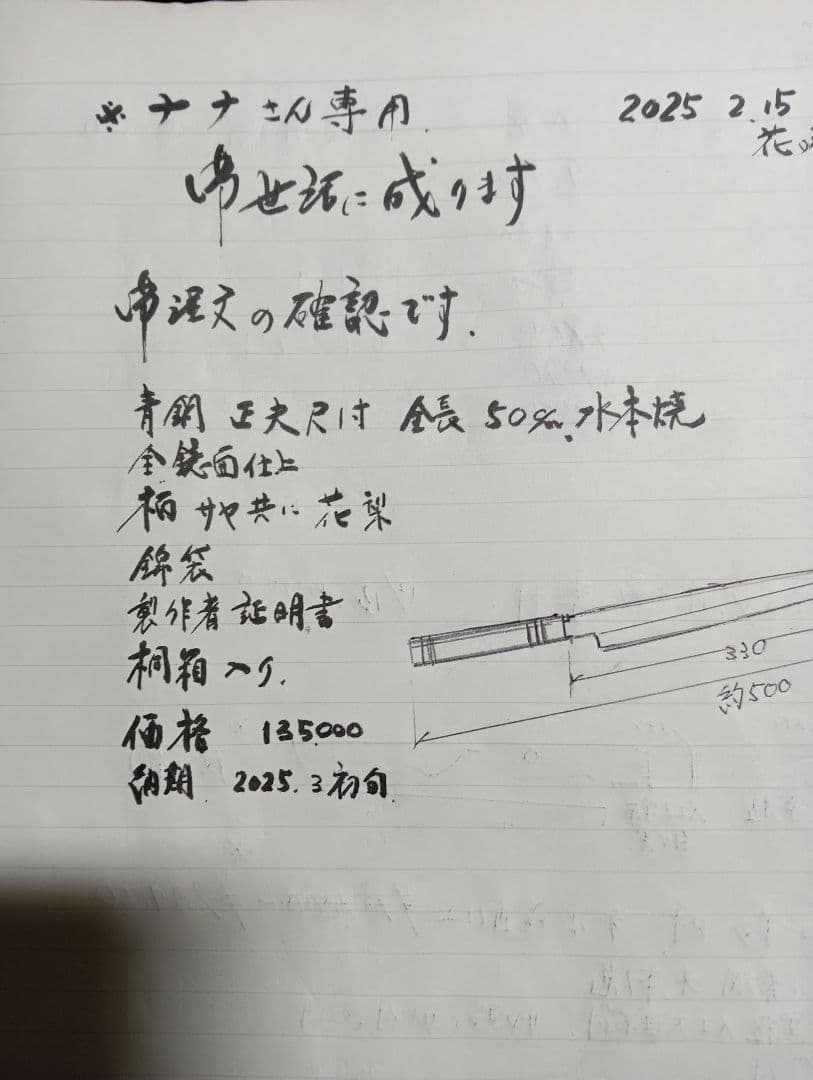 ※ ナナさん専用.
2025 2.15
花
御世話に成ります
御注文の確認です.
青鋼 正夫尺付 全長 50㎝. 水本焼
全鏡面仕上
柄 サヤ共に 花梨
錦袋
製作者 証明書
桐箱入り.
価格 135000
納期 2025.3初旬.
330
約500